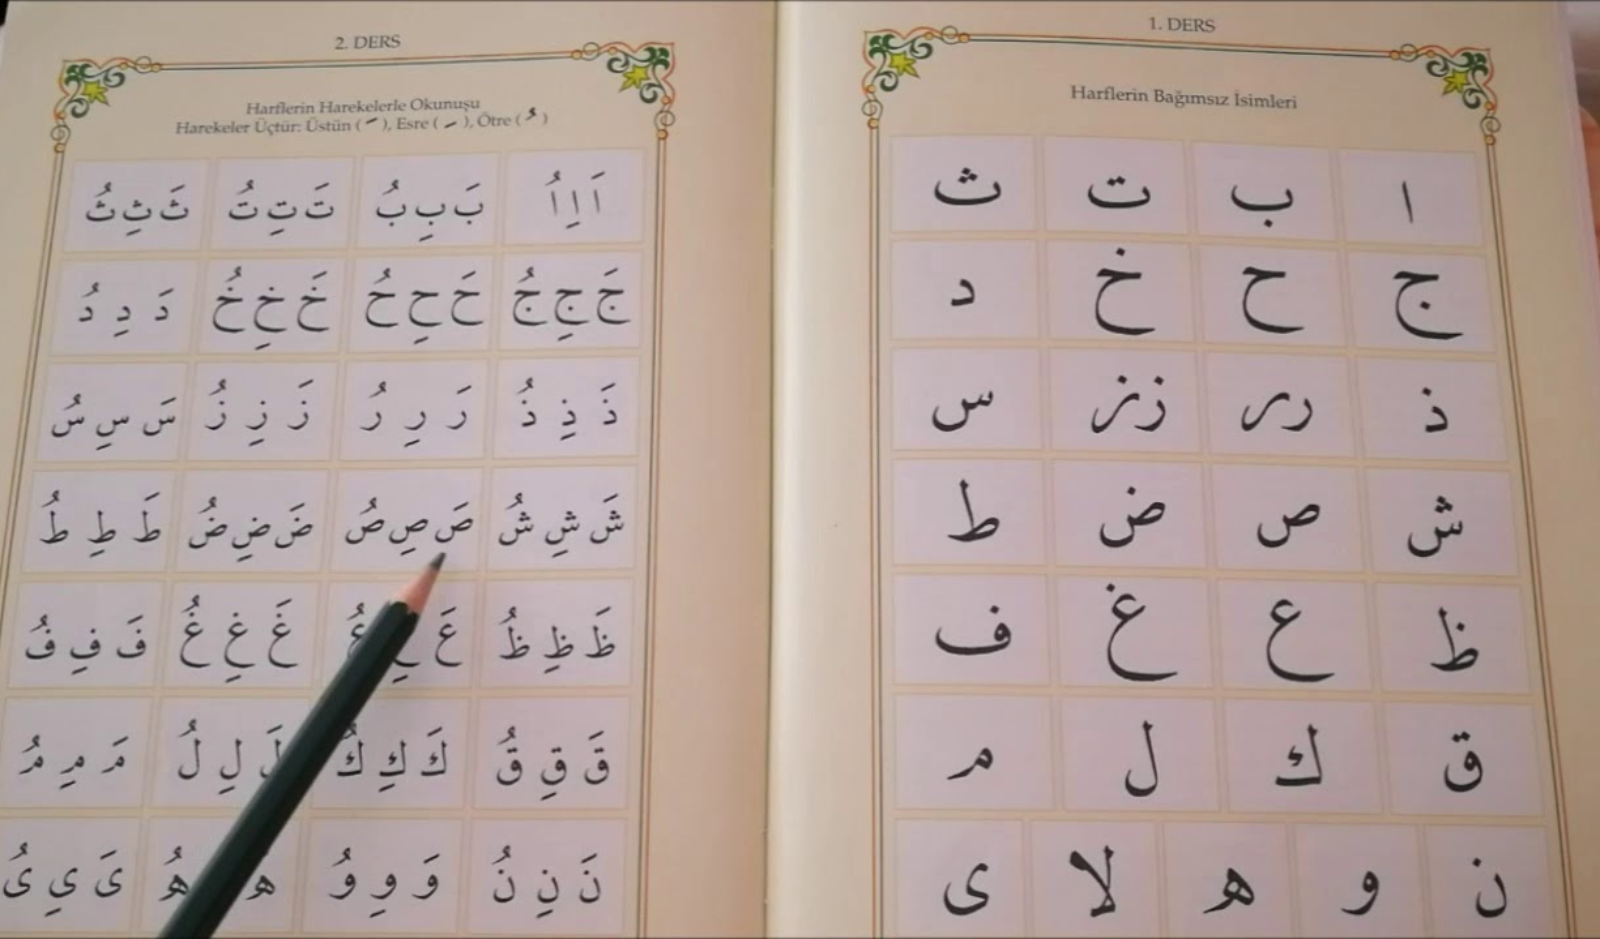 1. DERS
Harflerin Bağımsız İsimleri
ا ب ت ث
ج ح خ د
ذ رر زز س
ش ص ض ط
ظ ع غ ف
ق ك ل م
ن و ه لا ى
2. DERS
Harflerin Harekelerle Okunuşu
Harekeler Üçtür: Üstün ( َ ), Esre ( ِ ), Ötre ( ُ )
اَ اِ اُ بَ بِ بُ تَ تِ تُ ثَ ثِ ثُ
جَ جِ جُ حَ حِ حُ خَ خِ خُ دَ دِ دُ
ذَ ذِ ذُ رَ رِ رُ زَ زِ زُ سَ سِ سُ
شَ شِ شُ صَ صِ صُ ضَ ضِ ضُ طَ طِ طُ
ظَ ظِ ظُ عَ عُ غَ غِ غُ فَ فِ فُ
قَ قِ قُ كَ كِ كُ لَ لِ لُ مَ مِ مُ
نَ نِ نُ وَ وِ وُ هُ ىَ ىِ ىُ